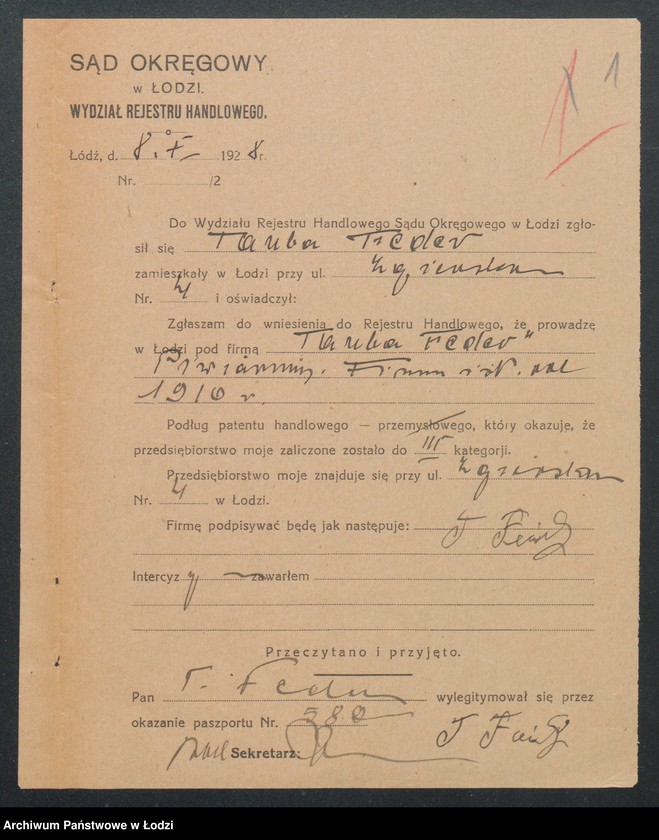 1
SĄD OKRĘGOWY
w ŁODZI.
WYDZIAŁ REJESTRU HANDLOWEGO.
Łódź, d. 8. 1928 r.
Nr. /2
Do Wydziału Rejestru Handlowego Sądu Okręgowego w Łodzi zgło-
sił się Tauba Feder
zamieszkały w Łodzi przy ul. Zgierska
Nr. 4 i oświadczył:
Zgłaszam do wniesienia do Rejestru Handlowego, że prowadzę
w Łodzi pod firmą Tauba Feder"
Firma ist. od
1910 r.
Podług patentu handlowego — przemysłowego, który okazuję, że
przedsiębiorstwo moje zaliczone zostało do III kategorji.
Przedsiębiorstwo moje znajduje się przy ul. Zgierska
Nr. 4 w Łodzi.
Firmę podpisywać będę jak następuje: T
Intercyzy zawarłem
Przeczytano i przyjęto.
Pan T. Feder wylegitymował się przez
okazanie paszportu Nr. 580 T
Sekretarz:
Archiwum Państwowe w Łodzi